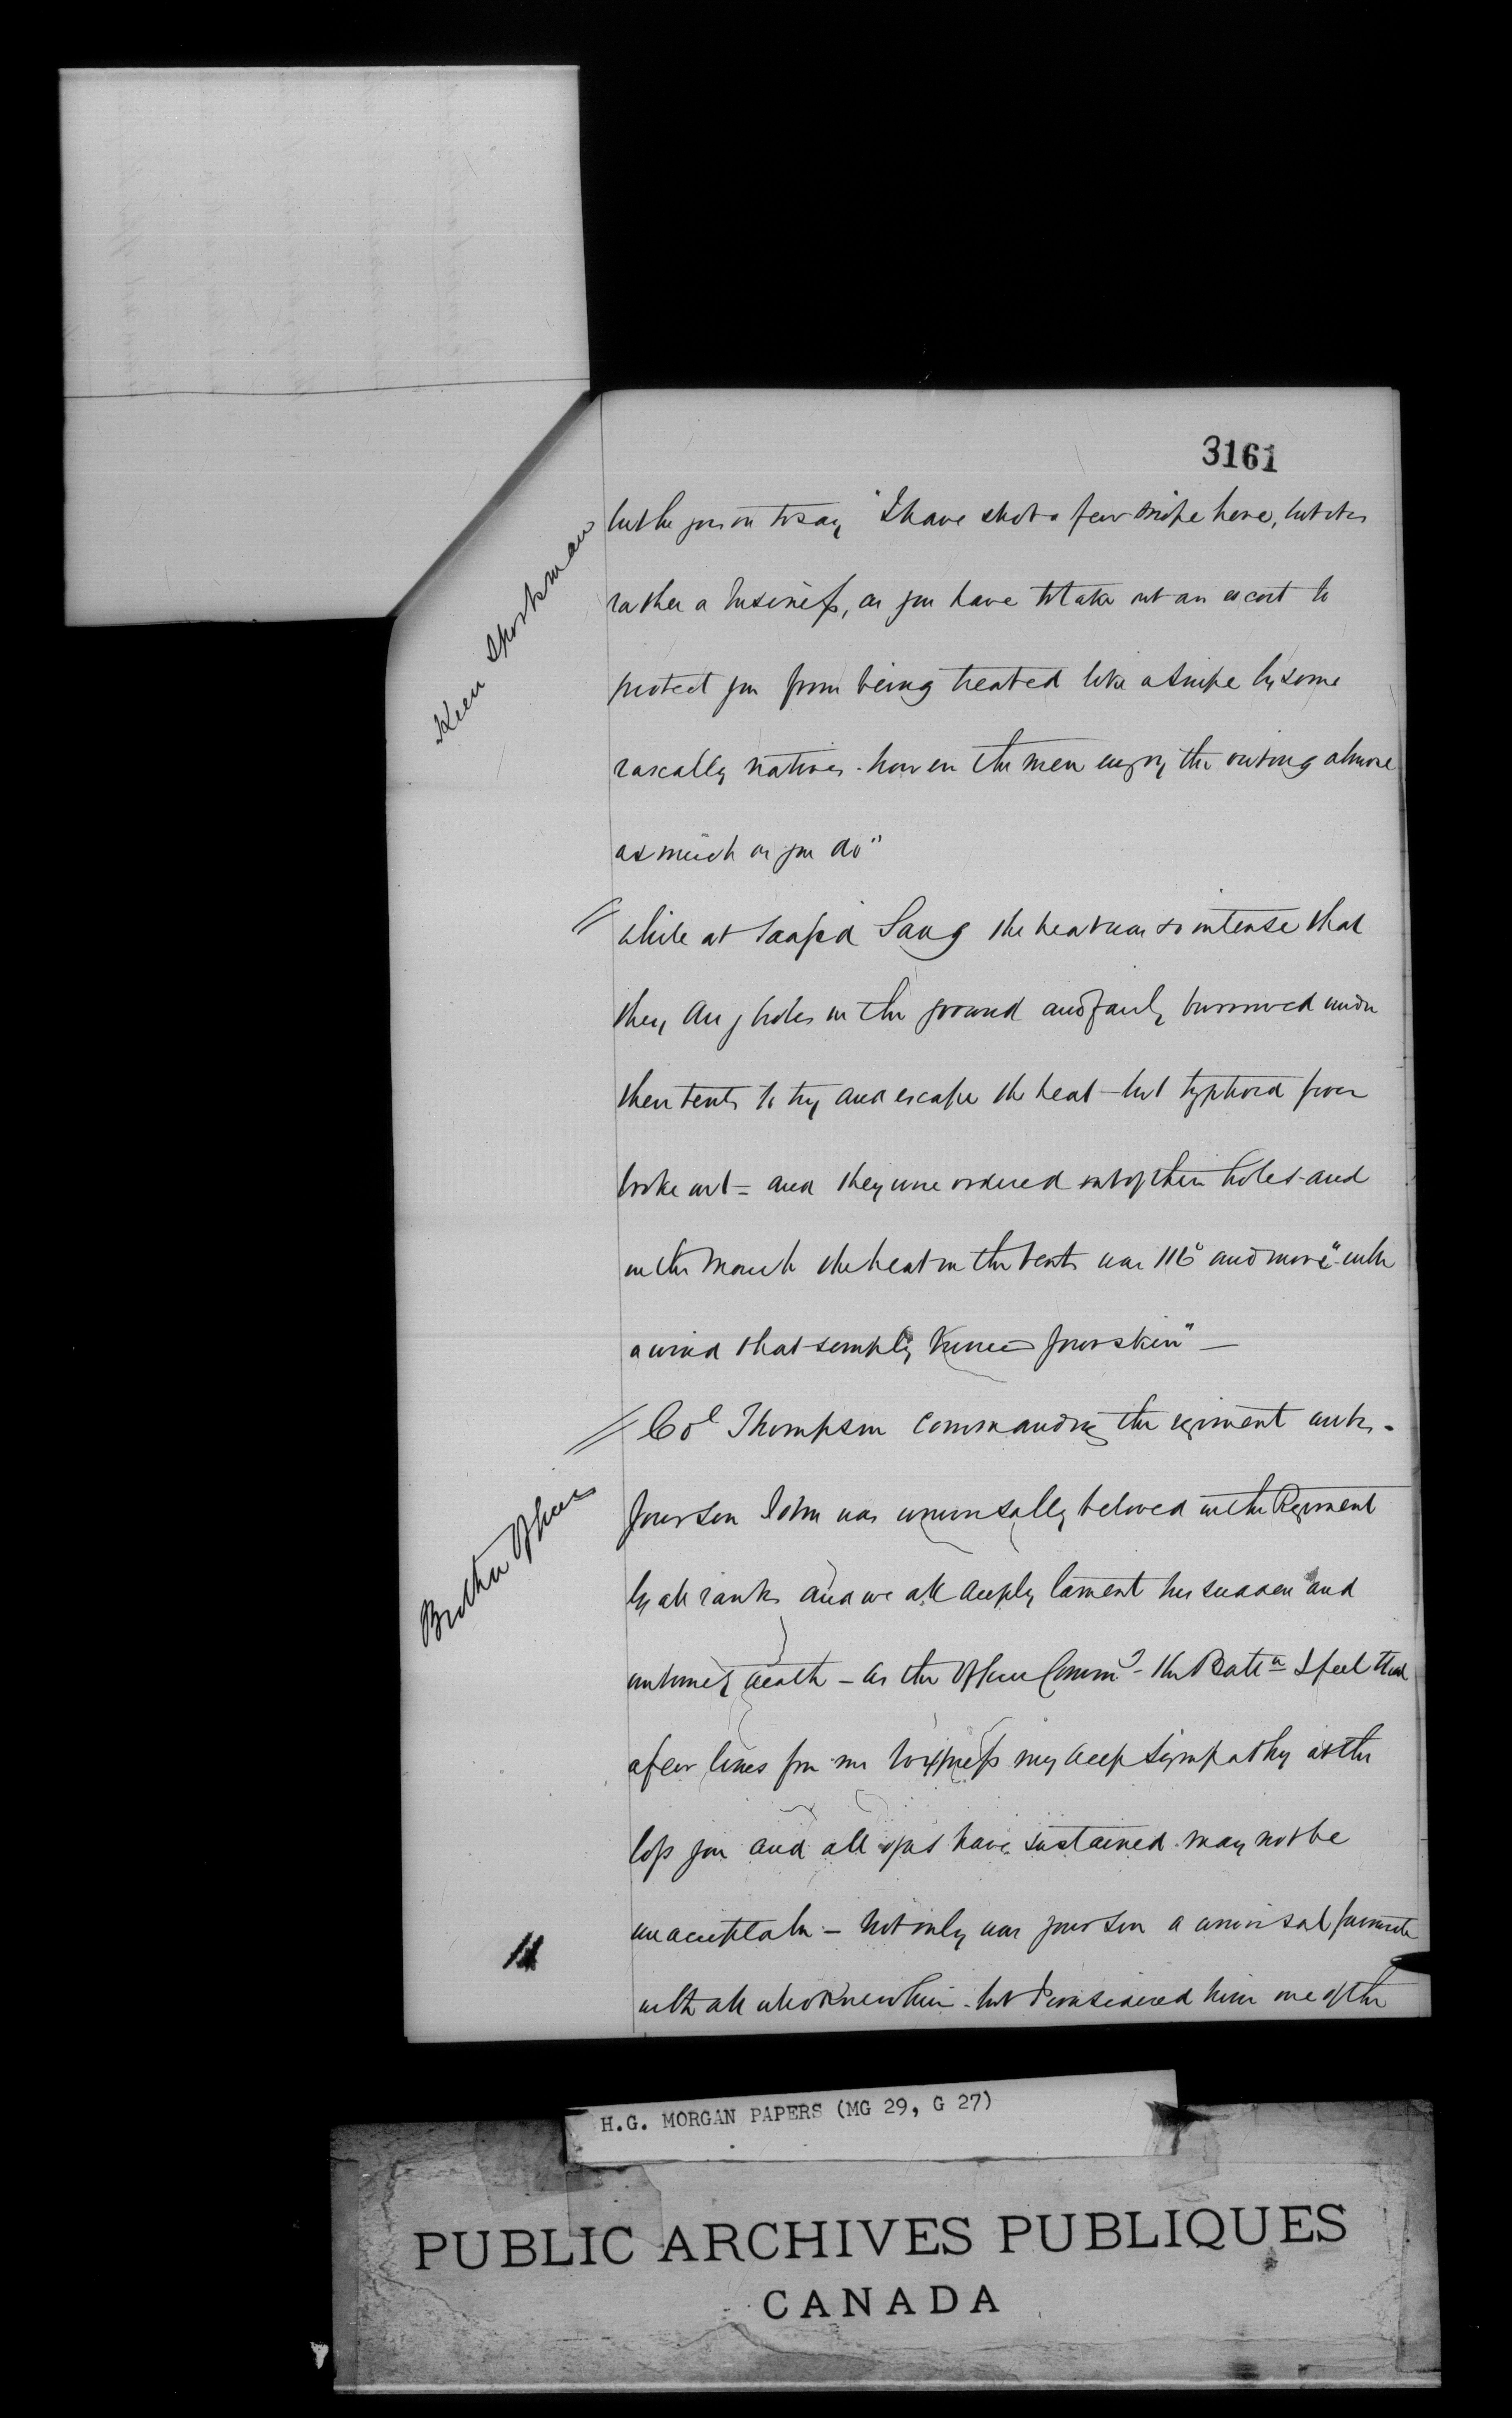 3161
Keen Sportsman
but he goes on to say "I have shot a few snipe here, but its
rather a businefs, as you have to take out an escort to
protect you from being treated like a snipe by some
rascally natives. however the men enjoy the outing almost
as much as you do"
// While at Saafid Sang the heat was so intense that
they dug holes in the ground and fairly burrowed under
their tents to try and escape the heat - but typhoid fever
broke out = and they were ordered out of their holes and
in the month the heat in the tents was 116° and more "with
a wind that simply burned your skin" —
// Col Thompson commanding the regiment writes.
Brother Officers
Your son John was universally beloved in the Regiment
by all ranks and we all deeply lament his sudden and
untimely death - As the Officer Commg the Battn I feel that
a few lines from me to exprefs my deep sympathy at the
lofs you and all of us have sustained. may not be
unacceptable - Not only was your son a universal favourite
with all who knew him. but I considered him one of the
11
H.G. MORGAN PAPERS (MG 29, G 27)
PUBLIC ARCHIVES PUBLIQUES
CANADA